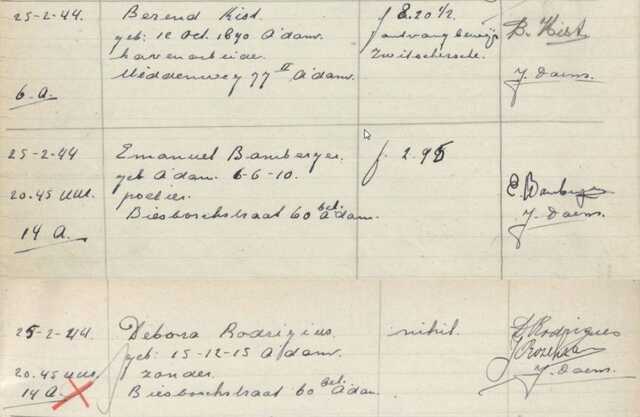 25-2-44. Berend Kist. f 8.20½ B. Kist
geb: 12 Oct. 1890 A'dam. ontvangbewijs
havenarbeider. Zwitschersche.
Middenweg 77 II A'dam. J. Daems.
6. A.
25-2-44 Emanuel Bamberger. f. 2.95
geb A'dam. 6-6-10.
20.45 uur. poelier. E. Bamberger
Biesboschstraat 60 bel. A'dam. J. Daems.
14 A.
25-2-44. Debora Rodrigius. nihil. D Rodrigues
geb: 15-12-15 A'dam.
20.45 uur. zonder. J. Daems.
14 A. Biesboschstraat 60 bel. A'dam